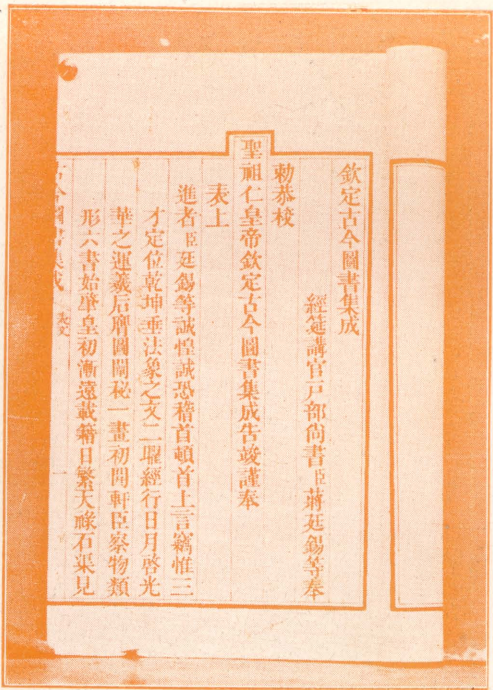 欽定古今圖書集成
經筵講官戶部尚書臣蔣廷錫等奉
勅恭校
聖祖仁皇帝欽定古今圖書集成告竣謹奉
表上
進者臣廷錫等誠惶誠恐稽首頓首上言竊惟三
才定位乾坤垂法象之文二曜經行日月啓光
華之運羲后聯圖闡秘一畫初開軒臣察物類
形六書始肇皇初漸遠載籍日繁天祿石渠見
古今圖書集成 表文 一